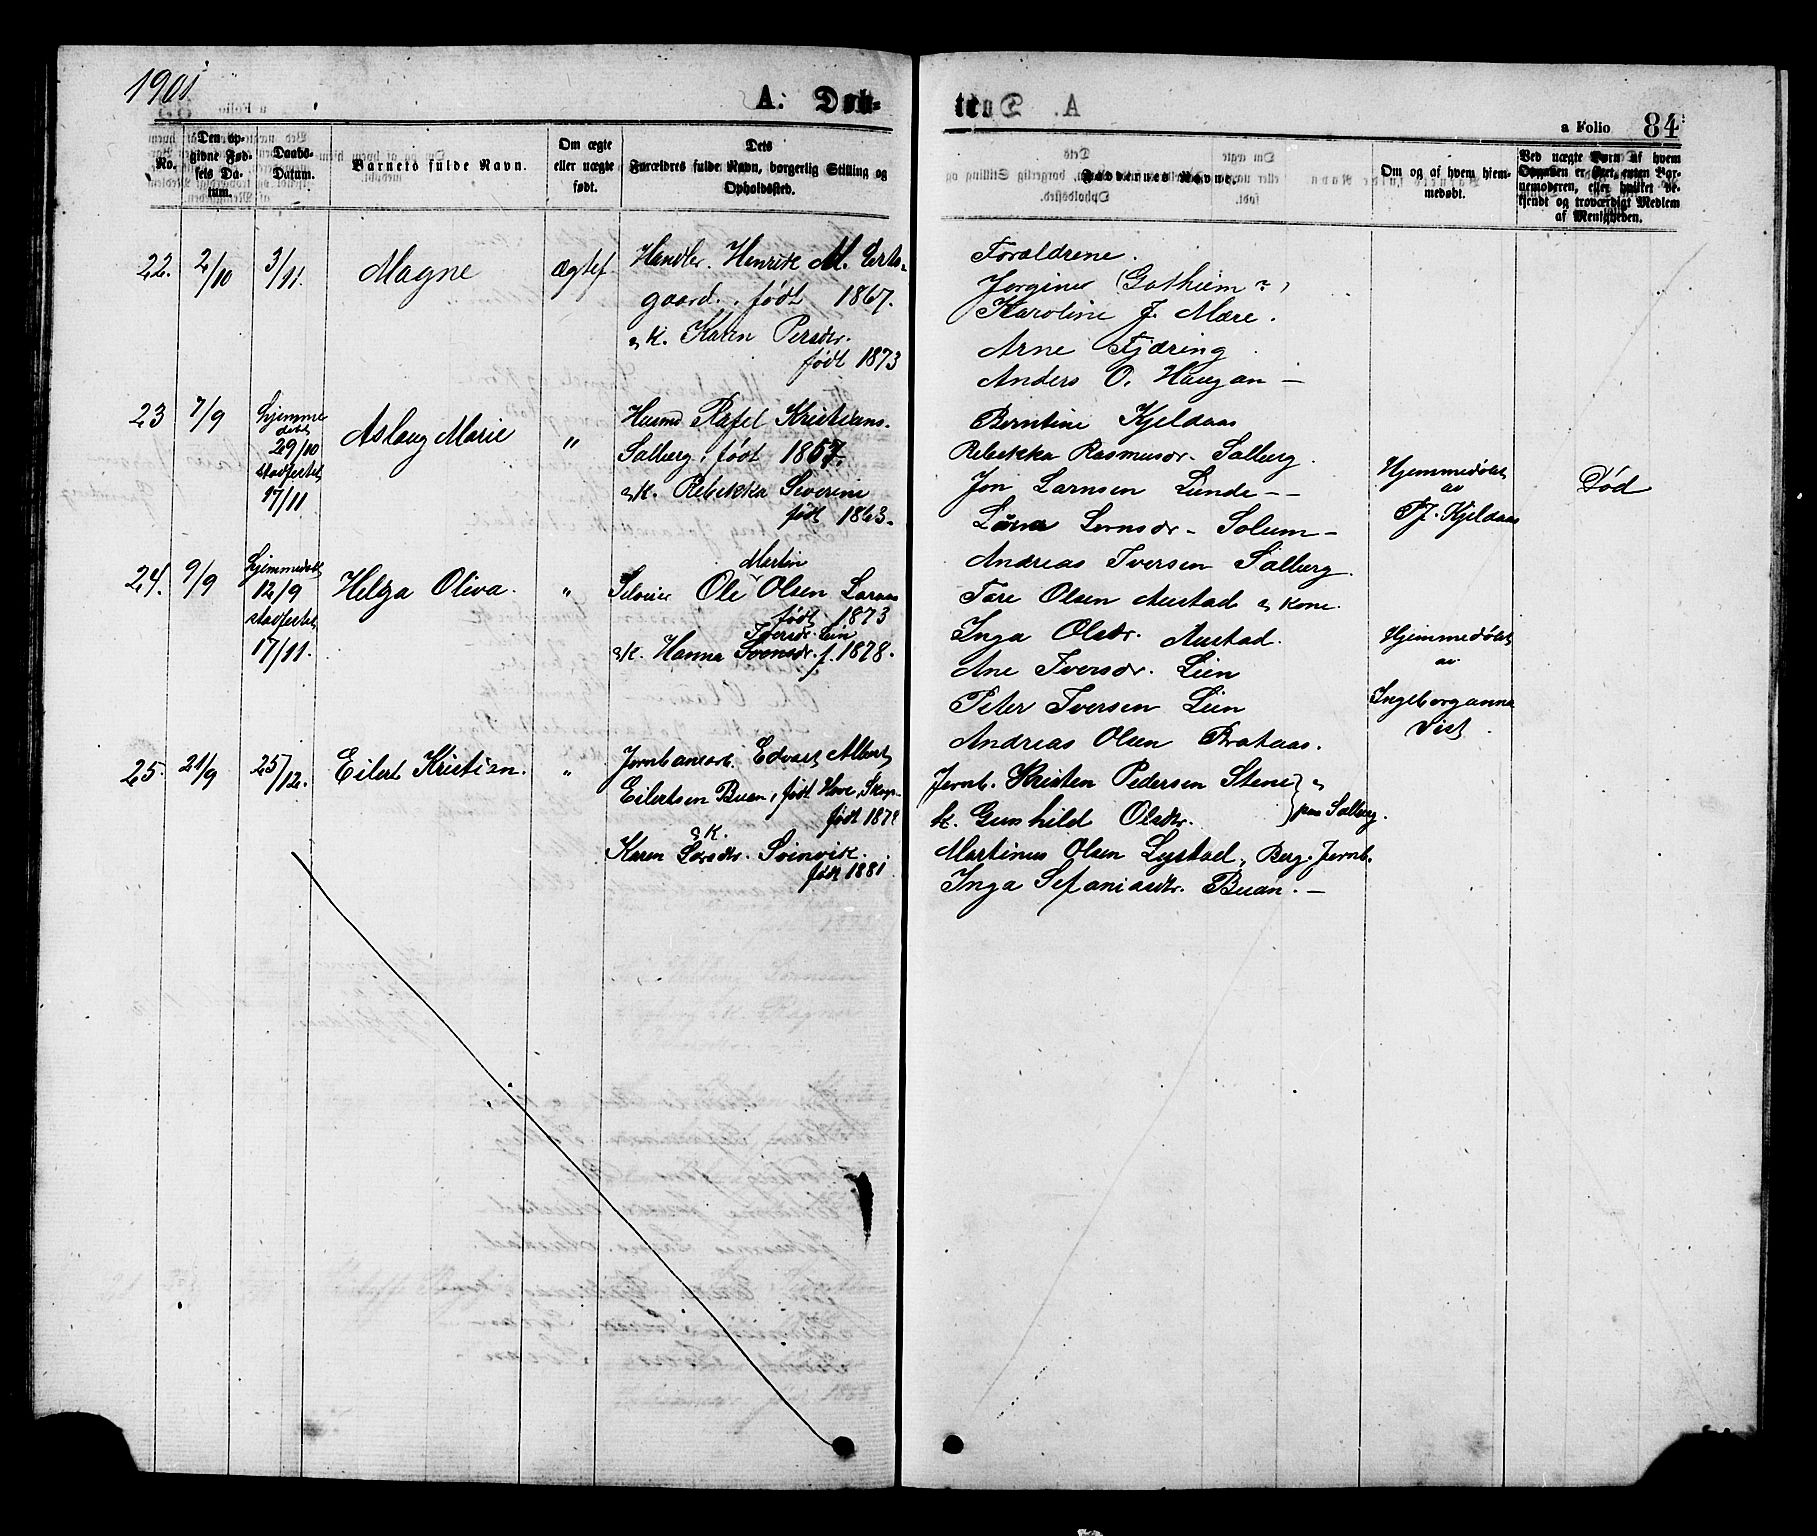 1901
A. Døb-
te.
a Folio 84
No.
Den op-
givne Fød-
sels Da-
tum.
Daabs-
Datum.
Barnets fulde Navn.
Om ægte
eller uægte
født.
Dets
Forældres fulde Navn, borgerlig Stilling og
Opholdssted.
Faddernes Navne.
Om og af hvem hjem-
medøbt.
Ved uægte Børn af hvem
Opgaven er sket, enten Bar-
nemoderen, eller hvilket be-
kjendt og troværdigt Medlem
af Menigheden.
22. 2/10 3/11. Magne Ægtef.
Handler. Henrik M. Erts-
gaard., født 1867.
& K. Karen Persdr.
født 1873
Forældrene.
Jorgine (Gathiem?)
Karoline J. Mære.
Arne Fjæring
Anders O. Haugan —
23 7/9
Hjemme
døbt
29/10
stadfestet
17/11
Aslaug Marie "
Husmd Rafel Kristians.
Salberg, født 1857.
& K. Rebekka Severine
født 1863.
Berntine Kjeldaas
Rebekka Rasmusdr. Salberg.
Jon Larnsen Lunde --
Lornsdr - Solum -
Andreas Iversen Salberg.
Hjemmedøbt
av
Kjeldaas
Død
24. 9/9
Hjemmedøbt
12/9
stadfestet
17/11.
Helga Oliva. "
Martin
Ole Olsen
født 1873
Iversdr. Lein
& K. Hanna Svensdr. f. 1878.
Tore Olsen Austad & kone.
Inga Olsdr. Austad.
Ane Iversdr. Lein
Peter Iversen Lein
Andreas Olsen Brataas.
Hjemmedøbt
av
Ingeborganna
Vist.
25. 21/9 25/12. Eilert Kristian. "
Jernbanearb. Edvart Albert
Eilertsen Buan, født Hove, Skogn.
født 1878
& K.
Karen Larsdtr. Svinvik.
født 1881
Jernb. Kristen Pedersen Stene &
k. Gunhild Olsdtr. paa Salberg.
Martinus Olsen Lystad, Berg. Jernb.
Inga Sefaniasdtr. Buan. —